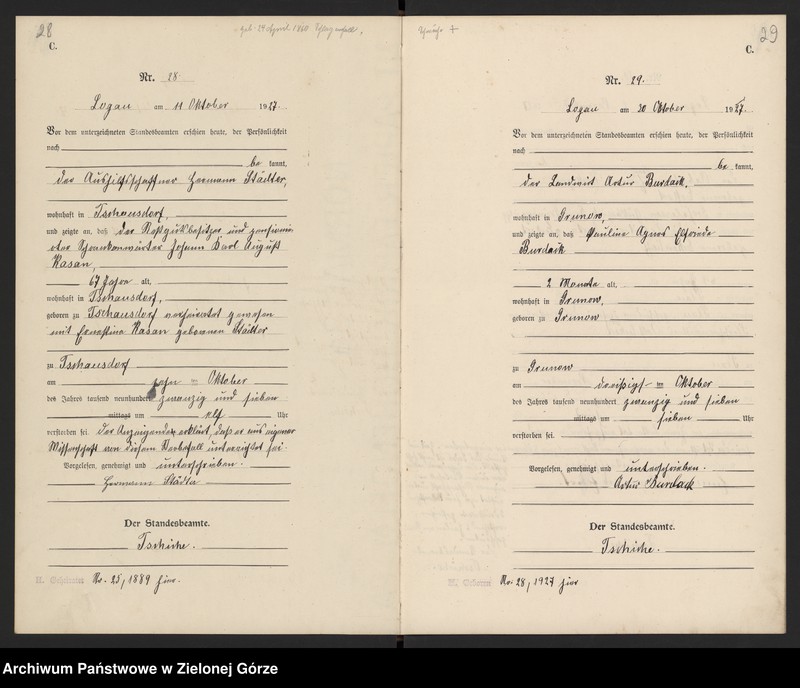 28
geb. 24 April 1860
C.
Nr. 28
Logau am 11 Oktober 1927.
Vor dem unterzeichneten Standesbeamten erschien heute, der Persönlichkeit
nach
be kannt,
der Hermann Städter,
wohnhaft in Tschausdorf,
und zeigte an, daß der und
Johann Karl August
Kasan,
67 Jahre alt,
wohnhaft in Tschausdorf,
geboren zu Tschausdorf verheiratet gewesen
mit Ernestine Kasan geborenen Städter
zu Tschausdorf
am zehn ten Oktober
des Jahres tausend neunhundert zwanzig und sieben
mittags um elf Uhr
verstorben sei. Der Anzeigende erklärt, daß er aus eigener
Wissenschaft von diesem Sterbefall unterrichtet sei.
Vorgelesen, genehmigt und unterschrieben.
Hermann Städter
Der Standesbeamte.
Tschiche.
H. Geheiratet Nr. 25, 1889 hier.
29
C.
Nr. 29.
Logau am 30 Oktober 1927.
Vor dem unterzeichneten Standesbeamten erschien heute, der Persönlichkeit
nach
be kannt,
der Landwirt Artur Burdack,
wohnhaft in Grunow,
und zeigte an, daß Pauline Agnes Elfriede
Burdack
2 Monate alt,
wohnhaft in Grunow,
geboren zu Grunow
zu Grunow
am dreißigsten Oktober
des Jahres tausend neunhundert zwanzig und sieben
mittags um sieben Uhr
verstorben sei.
Vorgelesen, genehmigt und unterschrieben.
Artur Burdack
Der Standesbeamte.
Tschiche.
Nr. 28, 1927 hier
Archiwum Państwowe w Zielonej Górze